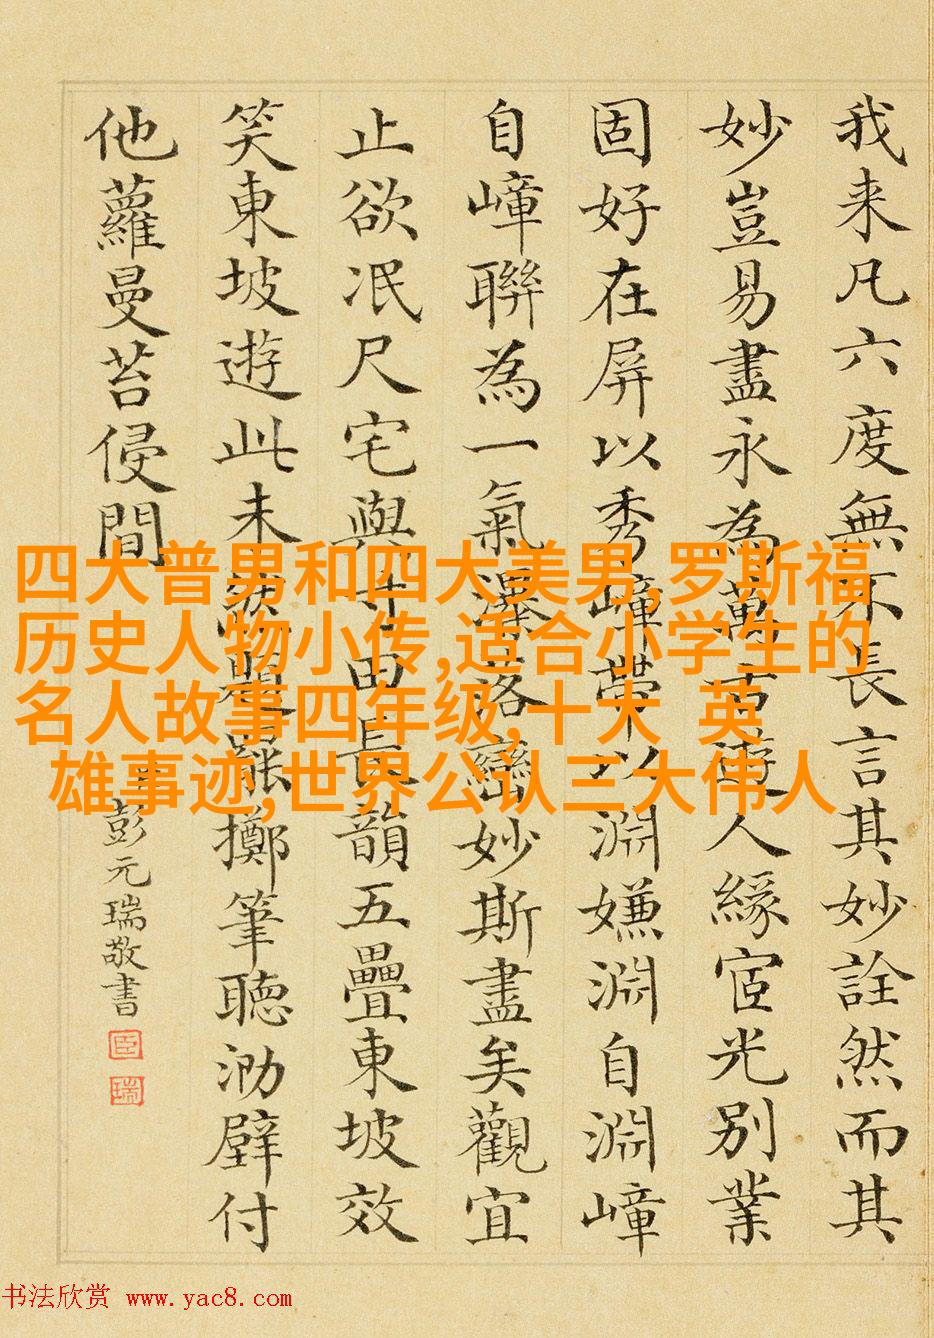 我来凡六度無不長言其妙詮然而其
妙豈易盡永為萬古人緣宧光別業
固好在屏以秀嶂帶以淵嫌淵自淵嶂
自嶂聯為一氣瀑落巒妙斯盡矣觀宜
止欲泯尺宅與寸田長韻五疊東坡效
笑東坡遊此未題罷擲筆聽泐壁付
他蘿曼苔侵間
臣彭元瑞敬書
臣
瑞
四大普男和四大美男,罗斯福
历史人物小传,适合小学生的
名人故事四年级,十大 英
雄事迹,世界公认三大伟人
书法欣赏 www.yac8.com